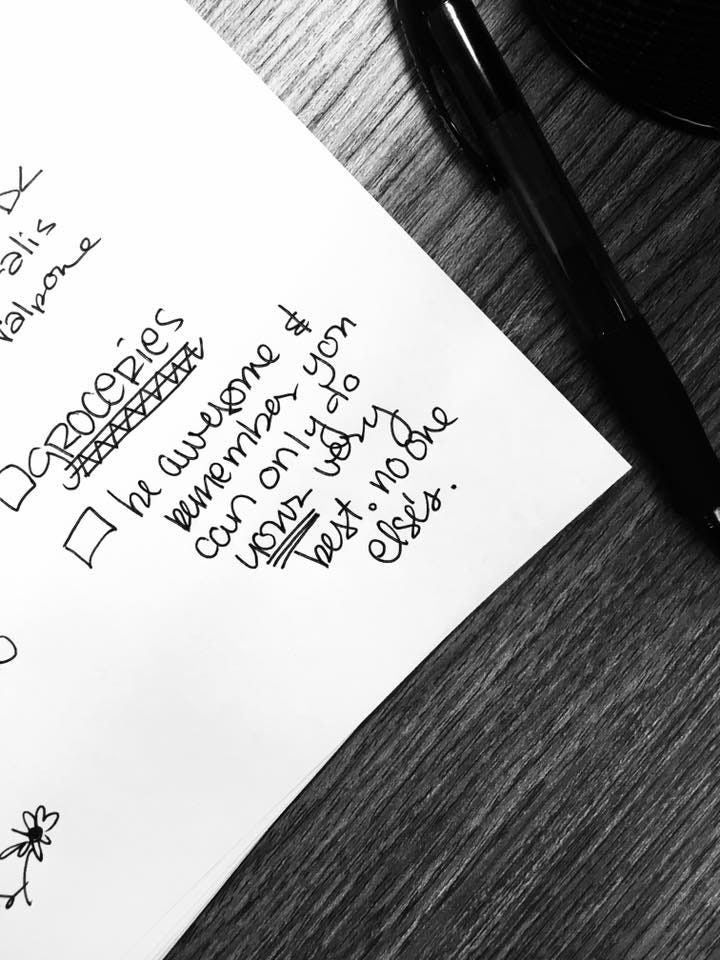 DL
alis
GROCERIES
be awesome &
remember you
can only do
your very
best. no one
else's.